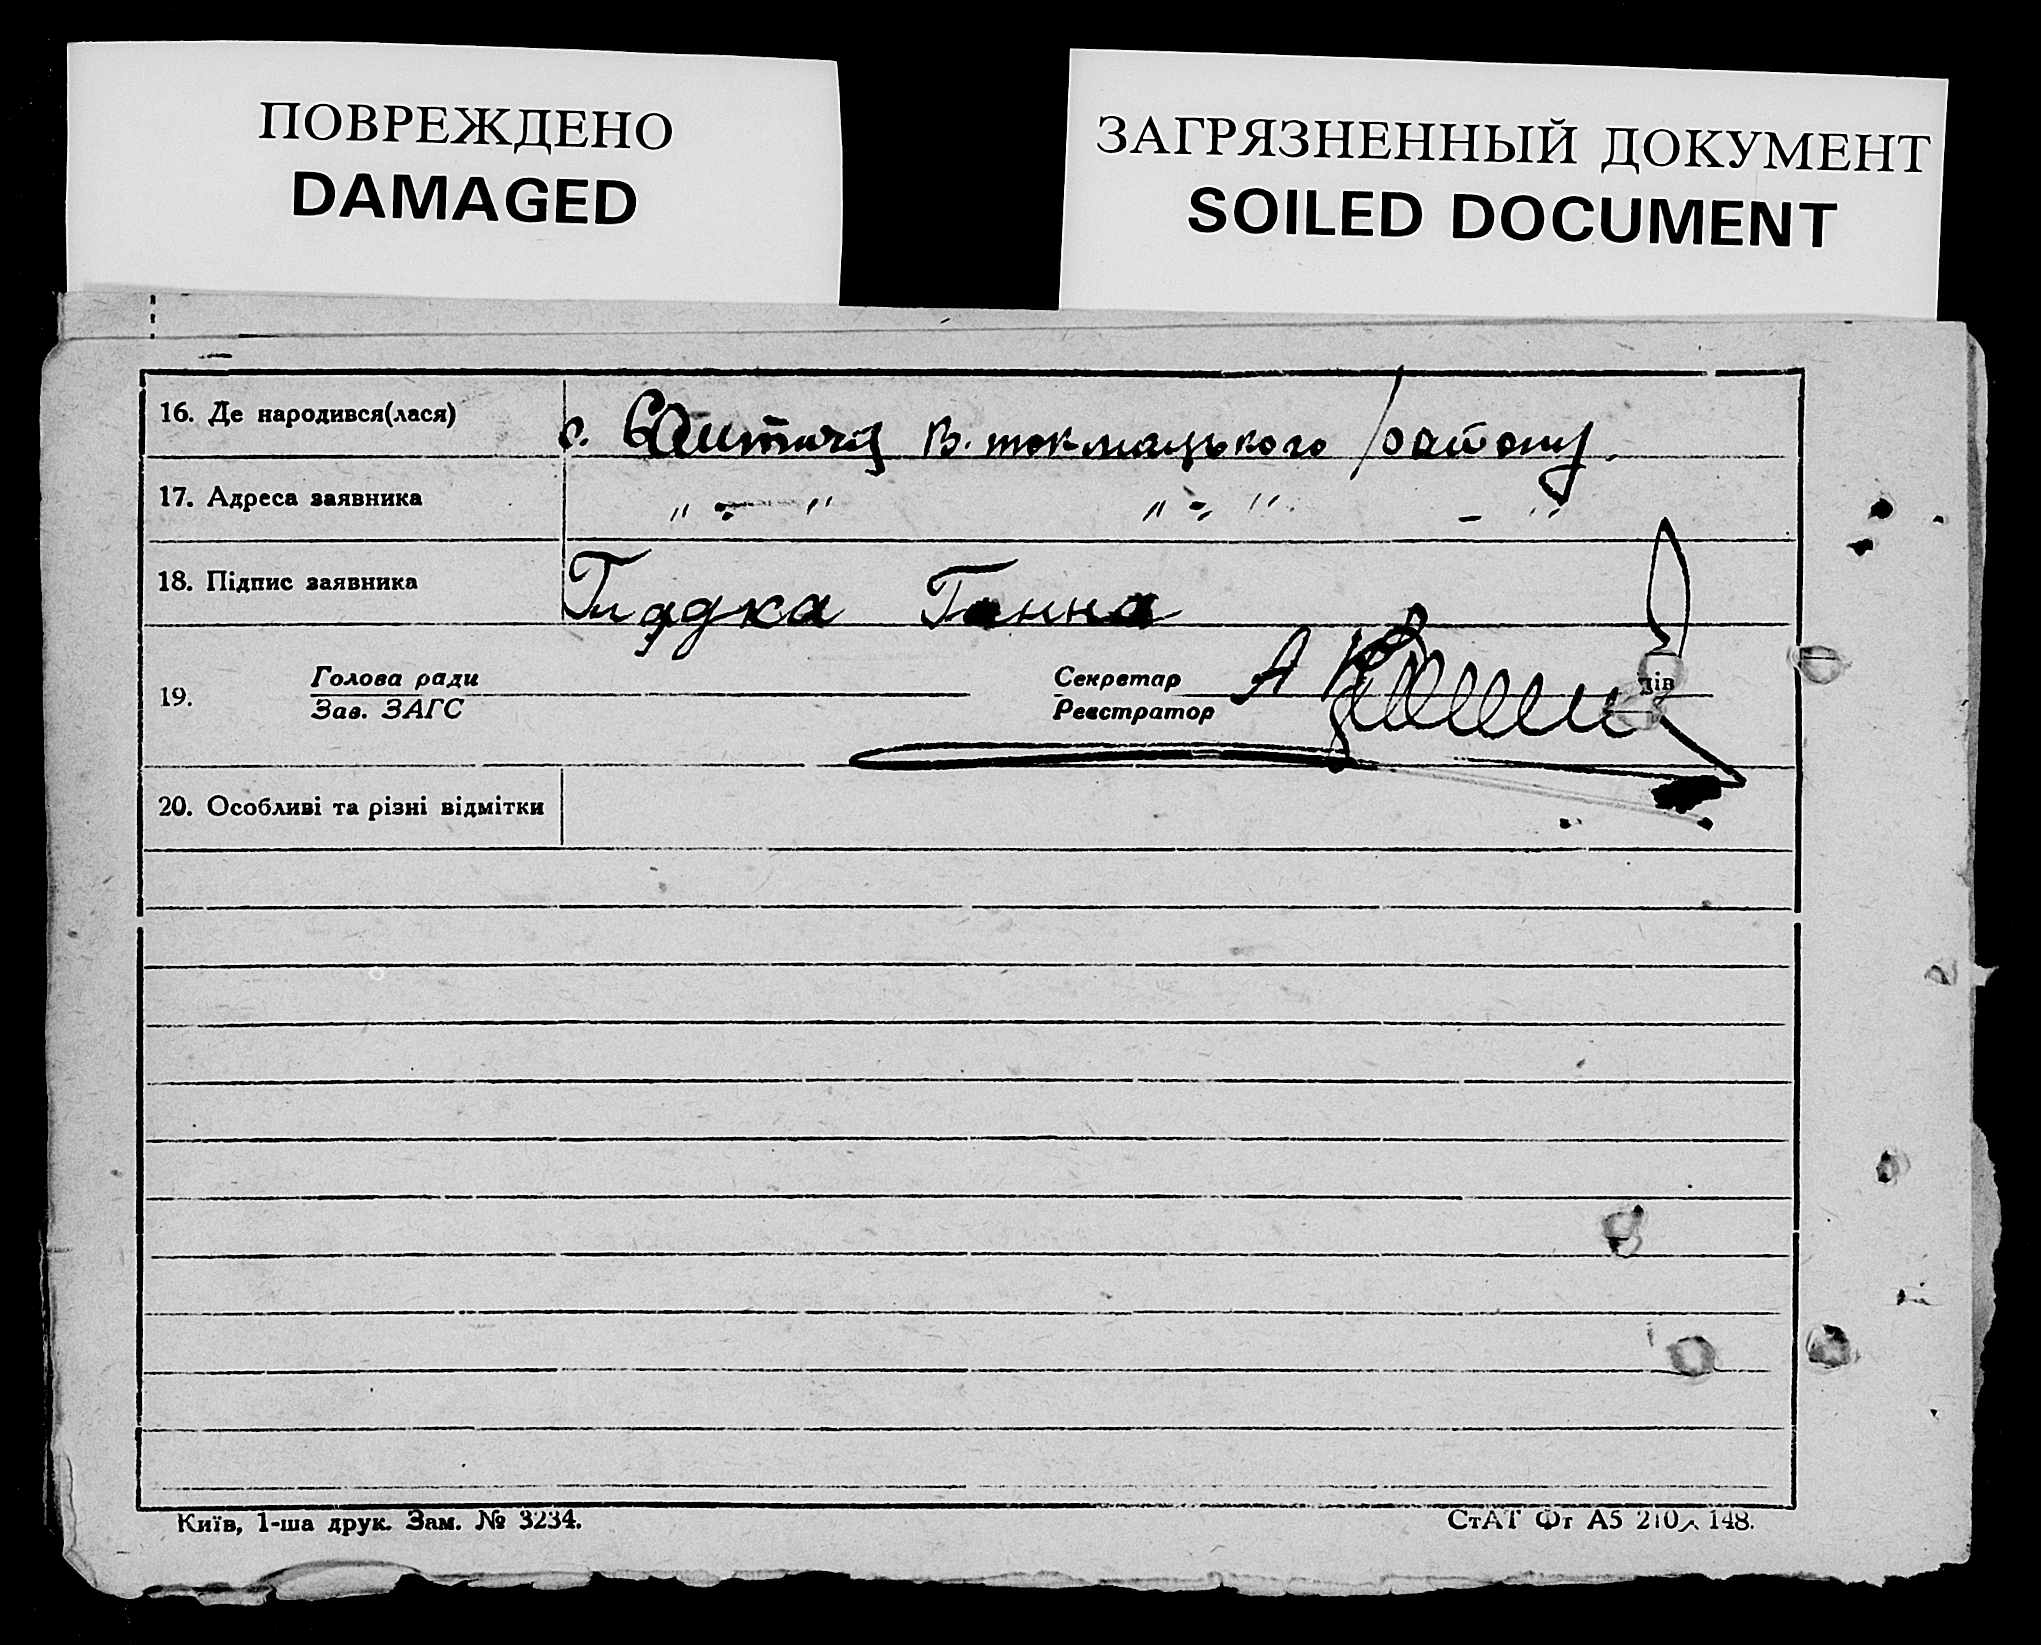 ПОВРЕЖДЕНО
DAMAGED
ЗАГРЯЗНЕННЫЙ ДОКУМЕНТ
SOILED DOCUMENT
16. Де народився(лася) с. В. токмацького району.
17. Адреса заявника „ - “ „ - “ - “
18. Підпис заявника Гладка Ганна
19. Голова ради Секретар А
Зав. ЗАГС Реєстратор
дів
20. Особливі та різні відмітки
Київ, 1-ша друк. Зам. № 3234.
СтАТ Фт А5 210 148.